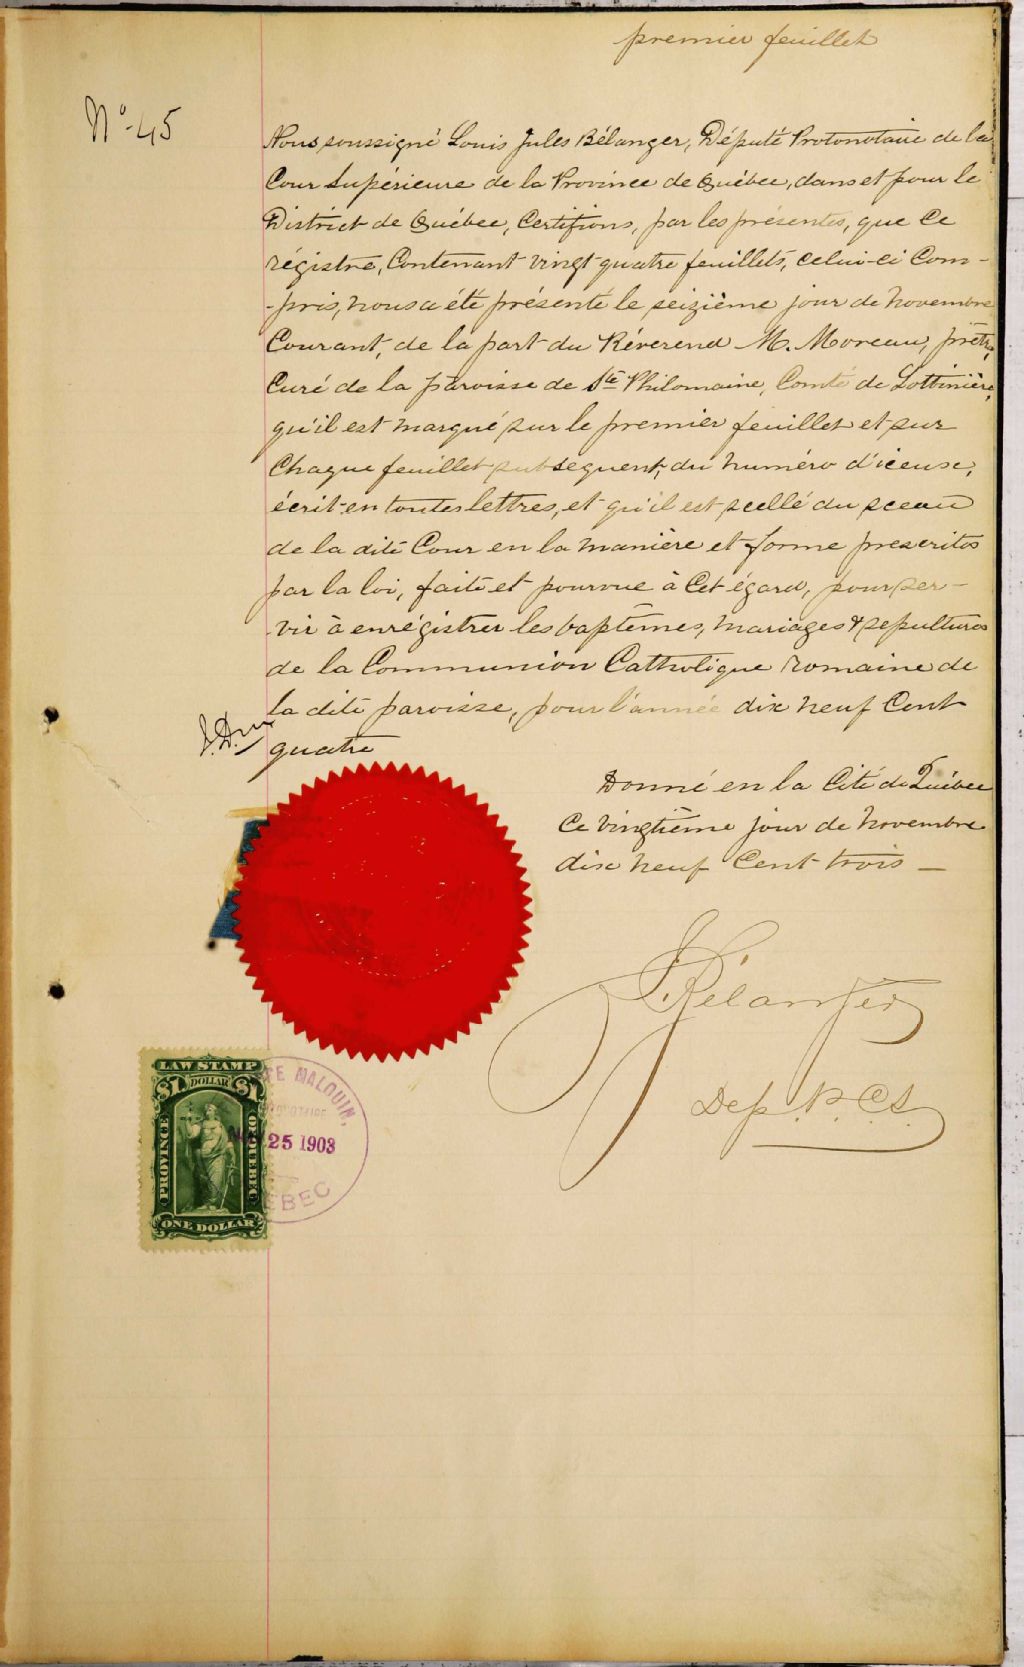 premier feuillet
No-45
Nous soussigné Louis Jules Bélanger, Député Protonotaire de la
Cour Supérieure de la Province de Québec, dans et pour le
District de Québec, Certifions, par les présentes, que Ce
régistre, Contenant vingt quatre feuillets, celui-ci Com-
-pris, nous a été présenté le seizième jour de novembre
Courant, de la part du Révérend M. Moreau, prêtre,
Curé de la paroisse de Ste Philomaine, Comté de Lotbinière,
qu'il est marqué sur le premier feuillet et sur
Chaque feuillet subsequent, du numéro d'iceux,
écrit en toutes lettres, et qu'il est scellé du sceau
de la dite Cour en la manière et forme prescrites
par la loi, faite et pourvue à Cet égard, pour ser-
vir à enrégistrer les baptêmes, mariages & sepultures
de la Communion Catholique romaine de
la dite paroisse, pour l'année dix neuf Cent
quatre
Donné en la Cité de Québec
Ce vingtième jour de novembre
dix neuf Cent trois —
J. Bélanger
Dep. P.C.S.
LAW STAMP
$1 DOLLAR $1
PROVINCE OF QUEBEC
ONE DOLLAR
MALOUIN,
25 1903
EBEC